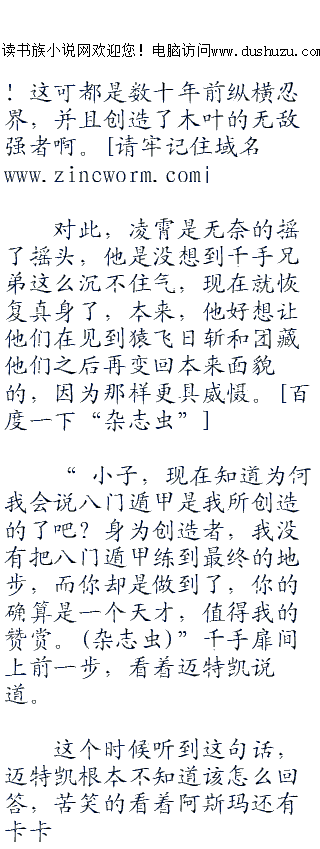 读书族小说网欢迎您！电脑访问www.dushuzu.com
！这可都是数十年前纵横忍
界，并且创造了木叶的无敌
强者啊。[请牢记住域名
www.zincworm.com|
对此，凌霄是无奈的摇
了摇头，他是没想到千手兄
弟这么沉不住气，现在就恢
复真身了，本来，他好想让
他们在见到猿飞日斩和团藏
他们之后再变回本来面貌
的，因为那样更具威慑。[百
度一下“杂志虫”]
“ 小子，现在知道为何
我会说八门遁甲是我所创造
的了吧？身为创造者，我没
有把八门遁甲练到最终的地
步，而你却是做到了，你的
确算是一个天才，值得我的
赞赏。(杂志虫)”千手扉间
上前一步，看着迈特凯说
道。
这个时候听到这句话，
迈特凯根本不知道该怎么回
答，苦笑的看着阿斯玛还有
卡卡